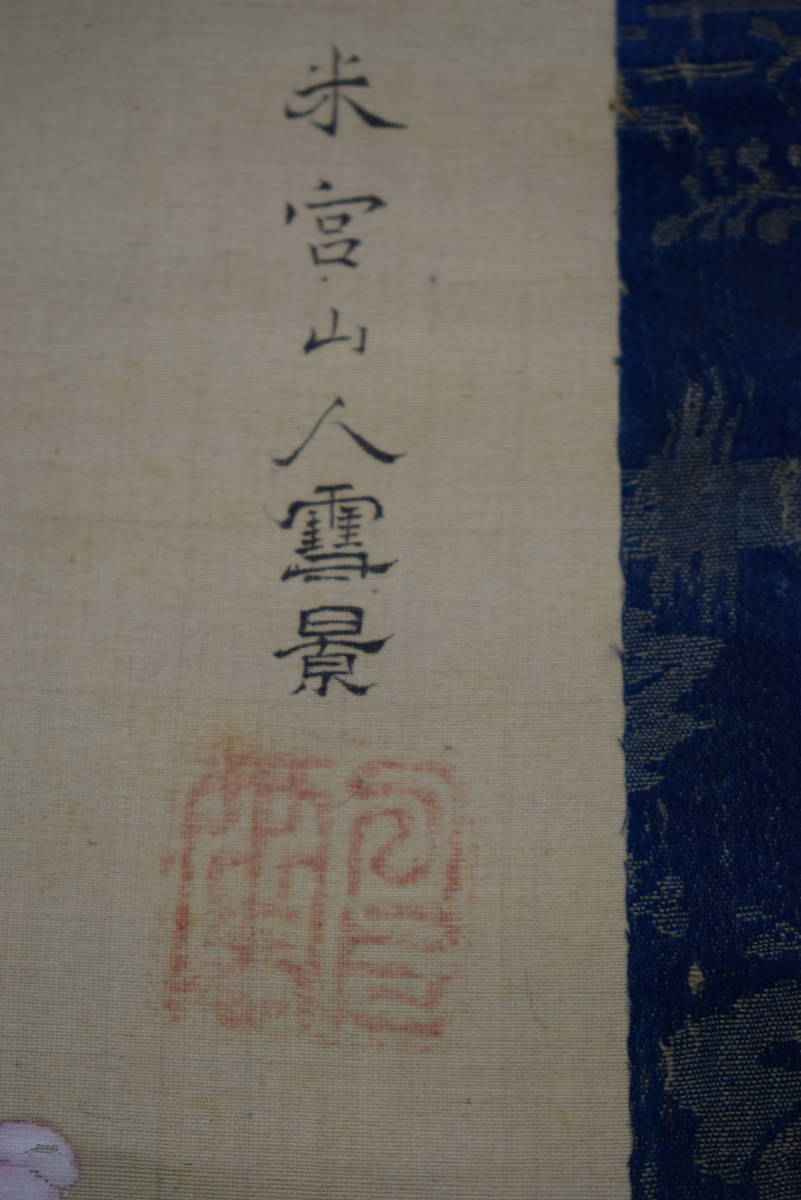 米宮山人雪景